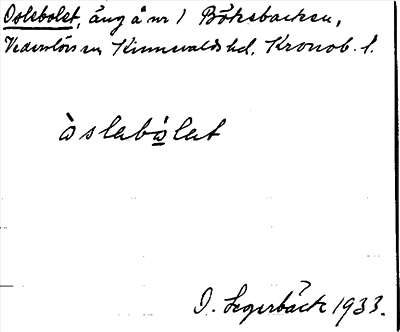 Oslabolet, äng å nr 1 Böksbacken,
Vederslövs sn Kinnevalds hd, Kronob. l.
òslabólat
D. Segerbäck 1933.